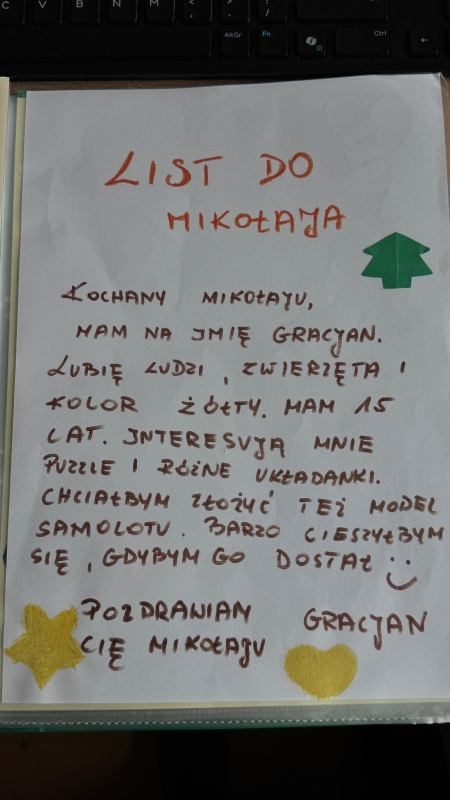 C V B N M < ; > :
, . / -
AltGr Fn Ctrl
LIST DO
MIKOŁAJA
KOCHANY MIKOŁAJU,
MAM NA JMIĘ GRACJAN.
LUBIĘ LUDZI, ZWIERZĘTA I
KOLOR ŻÓŁTY. MAM 15
LAT. JNTERESUJĄ MNIE
PUZZLE I RÓŻNE UKŁADANKI.
CHCIAŁBYM ZŁOŻYĆ TEŻ MODEL
SAMOLOTU. BARZO CIESZYŁBYM
SIĘ, GDYBYM GO DOSTAŁ
POZDRAWIAM GRACJAN
CIĘ MIKOŁAJU